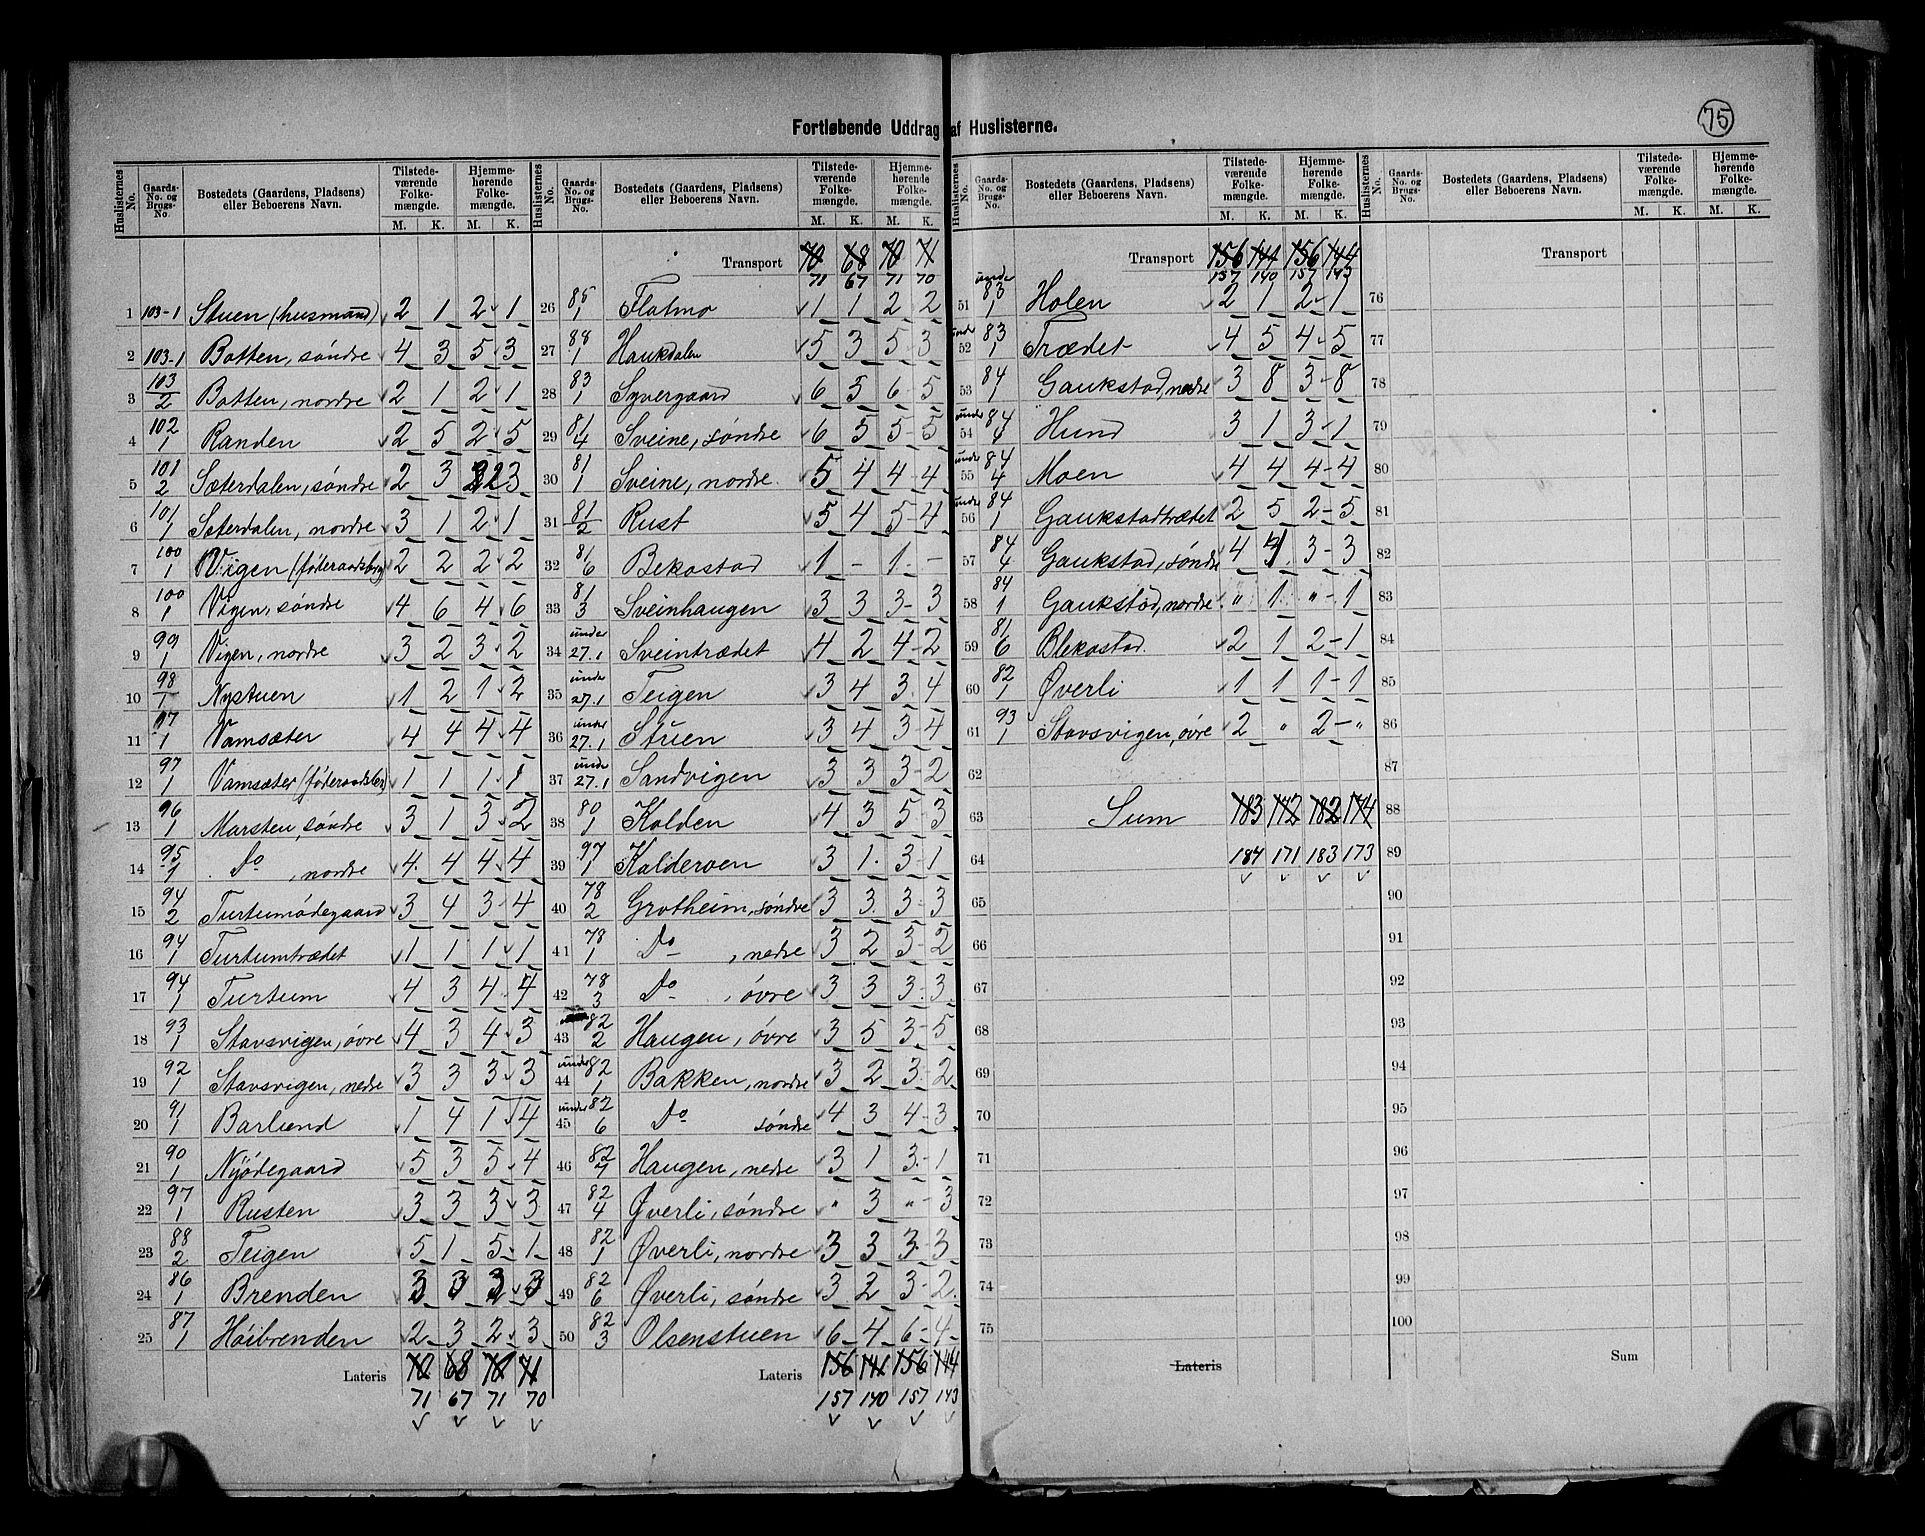 75
Fortløbende Uddrag af Huslisterne.
Huslisternes No. | Gaards-No. og Brugs-No. | Bostedets (Gaardens, Pladsens) eller Beboerens Navn. | Tilstedeværende Folkemængde. M. K. | Hjemmehørende Folkemængde. M. K.
1 103-1 Stuen (husmand) 2 1 2 1
2 103-1 Botten, søndre 4 3 5 3
3 103/2 Botten, nordre 2 1 2 1
4 102/1 Randen 2 5 2 5
5 101/2 Sæterdalen, søndre 2 3 2 3
6 101/1 Sæterdalen, nordre 3 1 2 1
7 100/1 Vigen (føderaadsbyg) 2 2 2 2
8 100/1 Vigen, søndre 4 6 4 6
9 99/1 Vigen, nordre 3 2 3 2
10 98/1 Nystuen 1 2 1 2
11 97/1 Vamsæter 4 4 4 4
12 97/1 Vamsæter (føderaadsbr.) 1 1 1 1
13 96/1 Marsten, søndre 3 1 3 2
14 95/1 Do , nordre 4 4 4 4
15 94/2 Turtumødegaard 3 4 3 4
16 94/1 Turtumtrædet 1 1 1 1
17 94/1 Turtum 4 3 4 4
18 93/1 Stavsvigen, øvre 4 3 4 3
19 92/1 Stavsvigen, nedre 3 3 3 3
20 91/1 Barlund 1 4 1 4
21 90/1 Nyødegaard 5 3 5 4
22 97/1 Rusten 3 3 3 3
23 88/2 Teigen 5 1 5 1
24 86/1 Brenden 3 3 3 3
25 87/1 Høibrenden 2 3 2 3
Lateris 70 68 70 71
71 67 71 70
Transport 70 68 70 71
71 67 71 70
26 85/1 Flatmo 1 1 2 2
27 88/1 Haukdalen 5 3 5 3
28 83/1 Syvergaard 6 5 6 5
29 81/4 Sveine, søndre 6 5 5 5
30 81/1 Sveine, nordre 5 4 4 4
31 81/2 Rust 5 4 5 4
32 81/6 Bekostad 1 - 1 -
33 81/3 Sveinhaugen 3 3 3 3
34 under 27.1 Sveintrædet 4 2 4 2
35 under 27.1 Teigen 3 4 3 4
36 under 27.1 Stuen 3 4 3 4
37 under 27.1 Sandvigen 3 3 3 2
38 80/1 Kolden 4 3 5 3
39 97/1 Kolderoen 3 1 3 1
40 78/2 Grotheim, søndre 3 3 3 3
41 78/1 Do , nedre 3 2 3 2
42 78/3 Do , øvre 3 3 3 3
43 82/2 Haugen, øvre 3 5 3 5
44 under 82/1 Bakken, nordre 3 2 3 2
45 under 82/6 Do søndre 4 3 4 3
46 82/7 Haugen, nedre 3 1 3 1
47 82/4 Øverli, søndre " 3 " 3
48 82/1 Øverli, nordre 3 3 3 3
49 82/6 Øverli, søndre 3 2 3 2
50 82/3 Olsenstuen 6 4 6 4
Lateris 156 141 156 144
157 140 157 143
Transport 156 141 156 144
157 140 157 143
51 under 83/1 Holen 2 1 2 1
52 under 83/1 Trædet 4 5 4 5
53 84/1 Gaukstad, nedre 3 8 3 8
54 under 84/4 Hund 3 1 3 1
55 under 84/4 Moen 4 4 4 4
56 under 84/1 Gaukstadtrædet 2 5 2 5
57 84/4 Gaukstad, søndre 4 1 3 3
58 84/1 Gaukstad, nordre " 1 " 1
59 81/6 Blekostad 2 1 2 1
60 82/1 Øverli 1 1 1 1
61 93/1 Stavsvigen, øvre 2 " 2 "
62
63 Sum 183 172 182 174
64 184 171 183 173
65
66
67
68
69
70
71
72
73
74
75
Lateris
Transport
76
77
78
79
80
81
82
83
84
85
86
87
88
89
90
91
92
93
94
95
96
97
98
99
100
Sum